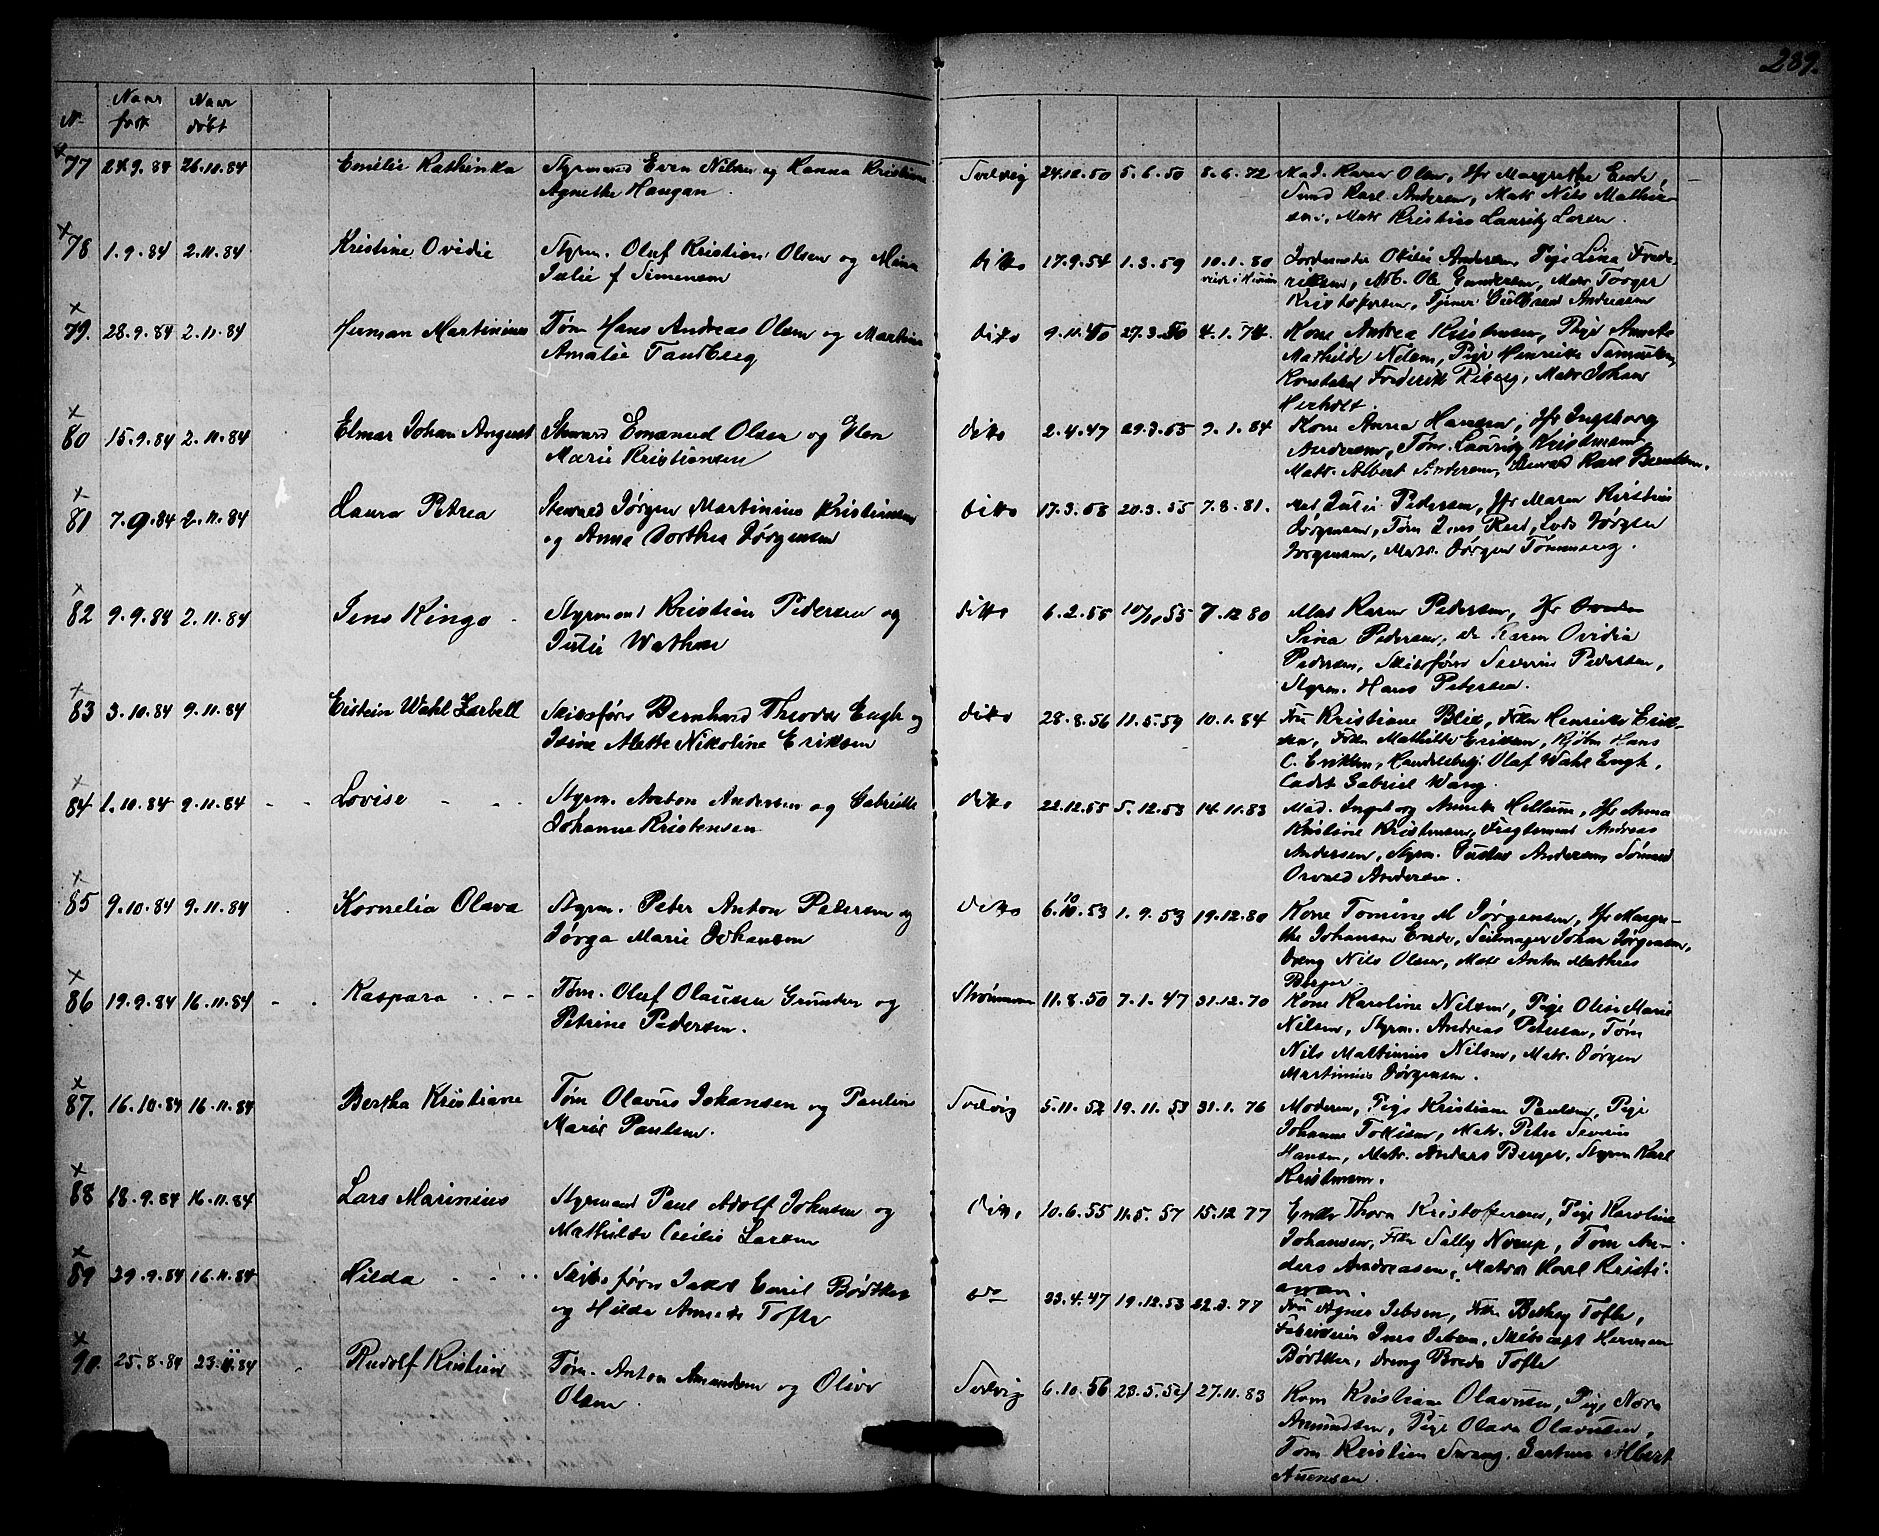 289.
No Naar født Naar døbt
77 27.9.84 26.10.84 Emilie Kathinka Styrmand Even Nilsen og Hanna Kristiane Svelvig 24.12.50 5.6.50 8.6.72 Mad. Karen Olsen, Jfr Margrethe Ende,
Agnethe Haugan. Karl Andersen, Matr Nils Mathie-
sen, Matr Kristius Lauritz Larsen.
78 1.9.84 2.11.84 Kristine Ovidie Styrm. Oluf Kristian Olsen og Mina ditto 17.9.54 1.3.59 10.1.80 Jordemoder Otilie Andersen, Pige Lina Frede-
Julie f Simensen riksen, Arb. Ole Gundersen, Matr Torger
Kristofersen, Andreasen
79. 28.9.84 2.11.84 Herman Martinius Tøm Hans Andreas Olsen og Martine ditto 9.11.50 27.3.50 4.1.74. Kone Andrea Kristensen, Pige Annette
Amalie Tandberg Mathilde Nilsen, Pige Henrikke Samuelsen,
Konstabel Frederik Riberg, Matr Johan
Herholt.
80 15.9.84 2.11.84 Elmar Johan August Steward Emanuel Olsen og Elen ditto 2.4.47 29.3.55 9.1.84 Kone Anna Hansen, Jfr Ingeborg
Marie Kristiansen Andersen, Tøm. Lauritz Kristensen
Matr. Albert Andersen, Steward Karl Berntsen.
81 7.9.84 2.11.84 Laura Petrea Steward Jørgen Martinius Kristiansen ditto 17.3.58 20.3.55 7.8.81. Mad Julie Pedersen, Jfr Maren Kirstine
og Anna Dorthea Jørgensen Jørgensen, Tøm Jens Reed, Lods Jørgen
Jørgensen, Matr. Jørgen Tømmereg.
82 9.9.84 2.11.84 Jens Ringo Styrmand Kristian Pedersen og ditto 6.2.55 10/10.55 7.12.80 Mad Karen Pedersen, Jfr
Julie Wathne Lina Pedersen, do Karen Ovidia
Pedersen, Skibsfører Severin Pedersen,
Styrm. Hans Petersen.
83 3.10.84 9.11.84 Eistein Wahl Zarbell Skibsfører Bernhard Theodor Engh og ditto 28.8.56 11.5.59 10.1.84 Fru Kristiane Blix, Frkn Henrikke Erik-
Isine Alette Nikoline Eriksen sen, Frkn Mathilde Eriksen, Kjøbm Hans
C. Eriksen, Handelsbetj. Olaf Wahl Engh,
Cadet Gabriel Wang.
84 1.10.84 9.11.84 Lovise Styrm. Anton Andersen og Gabrielle ditto 22.12.55 5.12.53 14.11.83 Mad. Ingeborg Annette Hellum, Jfr Anna
Johanne Kristensen Kristine Kristensen, Fragtemand Andreas
Andersen, Styrm. Gustav Andersen, Sømand
Osvald Andersen.
85 9.10.84 9.11.84 Kornelia Olava Styrm. Peter Anton Petersen og ditto 6.10.53 1.9.53 19.12.80 Kone Tomine M Jørgensen, Jfr Margre-
Jørga Marie Johansen the Johansen Ende, Seilmager Johan Jørgensen,
Dreng Nils Olsen, Matr Anton Mathias
Berger.
86 19.9.84 16.11.84 Kaspara Tøm. Oluf Olausen Grunden og Strømmen 11.8.50 7.1.47 31.12.70 Kone Karoline Nilsen, Pige Olise Marie
Petrine Pedersen. Nilsen, Styrm. Andreas Petersen, Tøm
Nils Martinius Nilsen, Matr. Jørgen
Martinius Jørgensen.
87. 16.10.84 16.11.84 Bertha Kristiane Tøm Olavus Johansen og Pauline Svelvig 5.11.52 19.11.53 31.1.76 Moderen, Pige Kristiane Paulsen, Pige
Marie Paulsen. Johanne Tollisen, Matr. Peter Severin
Hansen, Matr. Anders Berger, Styrm Karl
Kristensen.
88 18.9.84 16.11.84 Lars Marinius Styrmand Paul Adolf Johnsen og Dito 10.6.55 11.5.57 15.12.77 Enke Thora Kristofersen, Pige Karoline
Mathilde Cecilie Larsen Johansen, Frkn Sally Norup, Tøm An-
ders Andreasen, Matros Karl Kristi-
ansen.
89 29.9.84 16.11.84 Hilda Skibsfører Jakob Emil Bødtker do 23.4.47 19.12.53 22.3.77 Fru Agnes Jebsen, Frkn Betksy Tofte,
og Hilda Annette Tofte Fabrikeier Jens Jebsen, Skibscapt Herman
Bødtker, Dreng Brede Tofte
90. 25.8.84 23.11.84 Rudolf Kristian Tøm. Anton Amundsen og Olive Svelvig 6.10.56 28.5.54 27.11.83 Kone Kristiane Olavesen, Pige Nora
Olsen Amundsen, Pige Olava Olavesen,
Tøm Kristian Svang, Gartner Albert
Auensen.